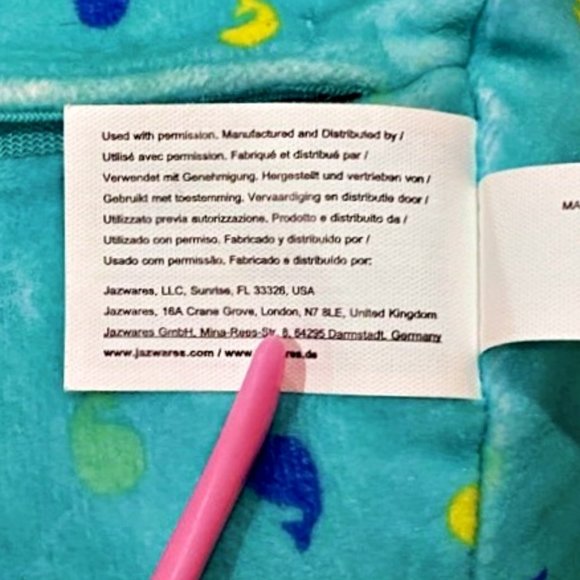 Used with permission. Manufactured and Distributed by /
Utilisé avec permission. Fabriqué et distribué par /
Verwendet mit Genehmigung. Hergestellt und vertrieben von /
Gebruikt met toestemming. Vervaardiging en distributie door /
Utilizzato previa autorizzazione. Prodotto e distribuito da /
Utilizado con permiso. Fabricado y distribuido por /
Usado com permissão. Fabricado e distribuído por:
Jazwares, LLC, Sunrise, FL 33326, USA
Jazwares, 16A Crane Grove, London, N7 8LE, United Kingdom
Jazwares GmbH, Mina-Rees-Str. 8, 64295 Darmstadt, Germany
www.jazwares.com /
MA